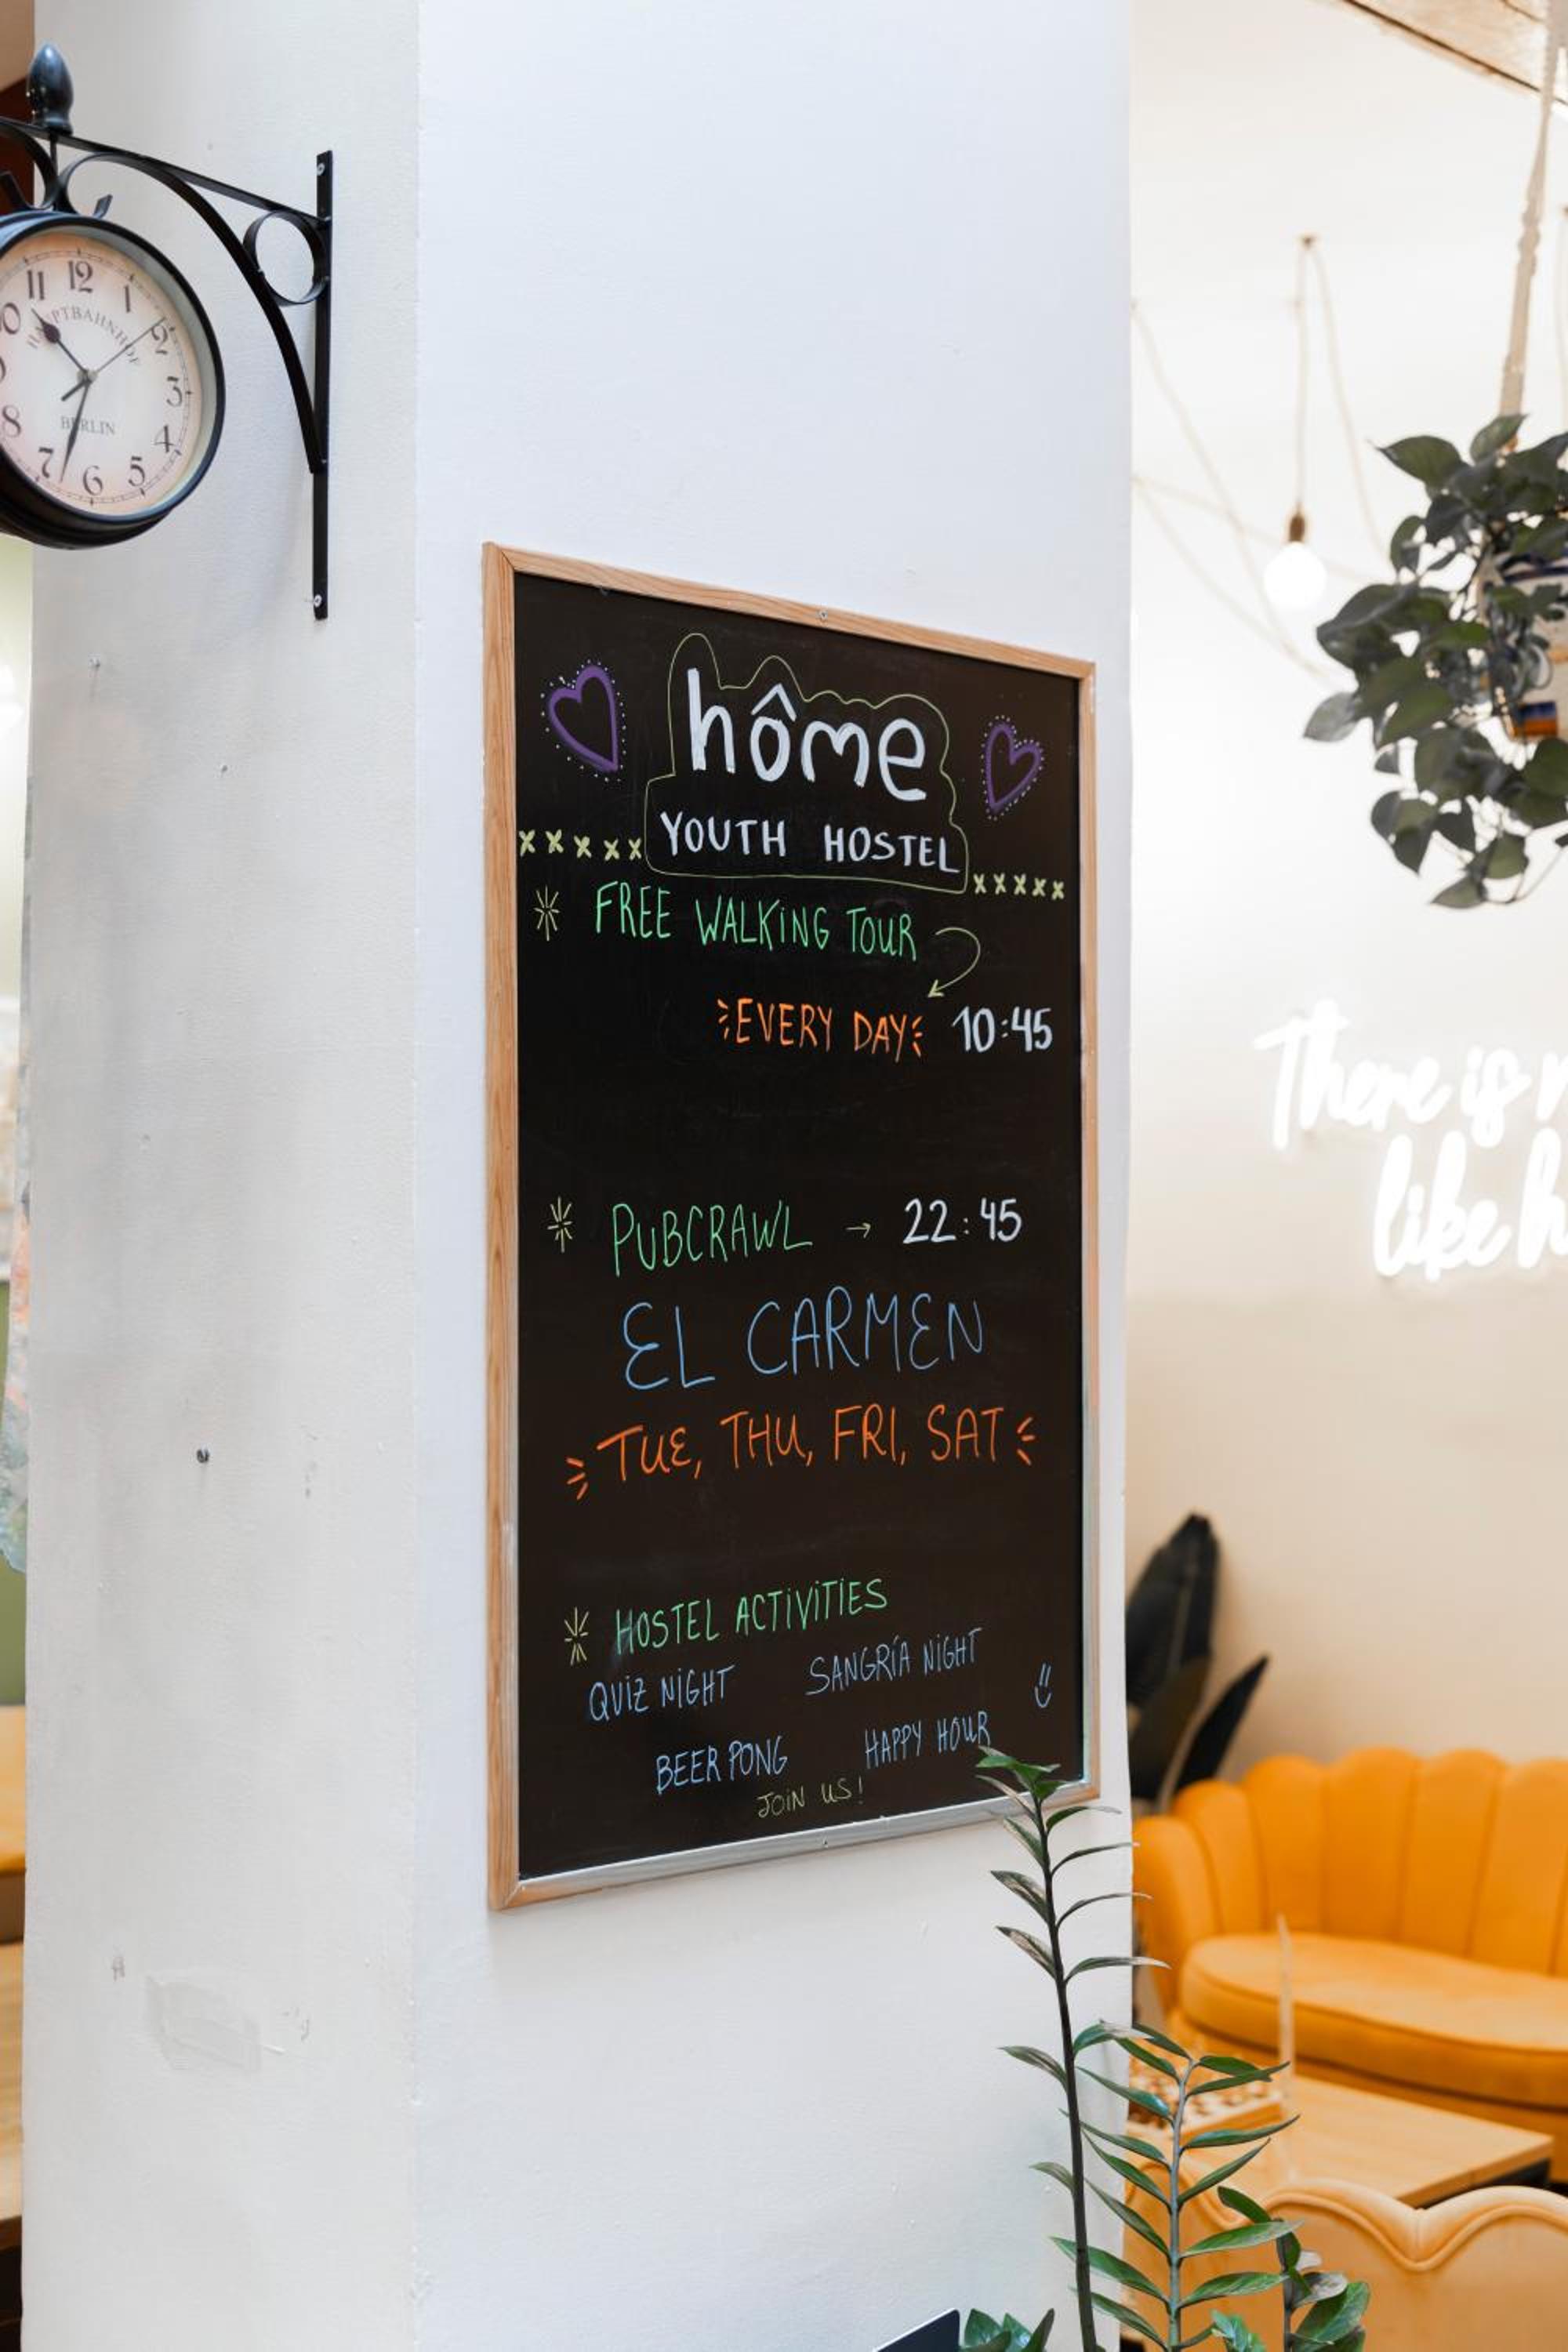 11 12 1
2
3
4
5
6
7
8
HAUPTBAHNHOF
BERLIN
hôme
YOUTH HOSTEL
xxxxx xxxxx
FREE WALKING TOUR
EVERY DAY 10:45
PUBCRAWL → 22:45
EL CARMEN
TUE, THU, FRI, SAT
HOSTEL ACTIVITIES
QUIZ NIGHT SANGRÍA NIGHT
BEER PONG HAPPY HOUR
JOIN US!
There is
like